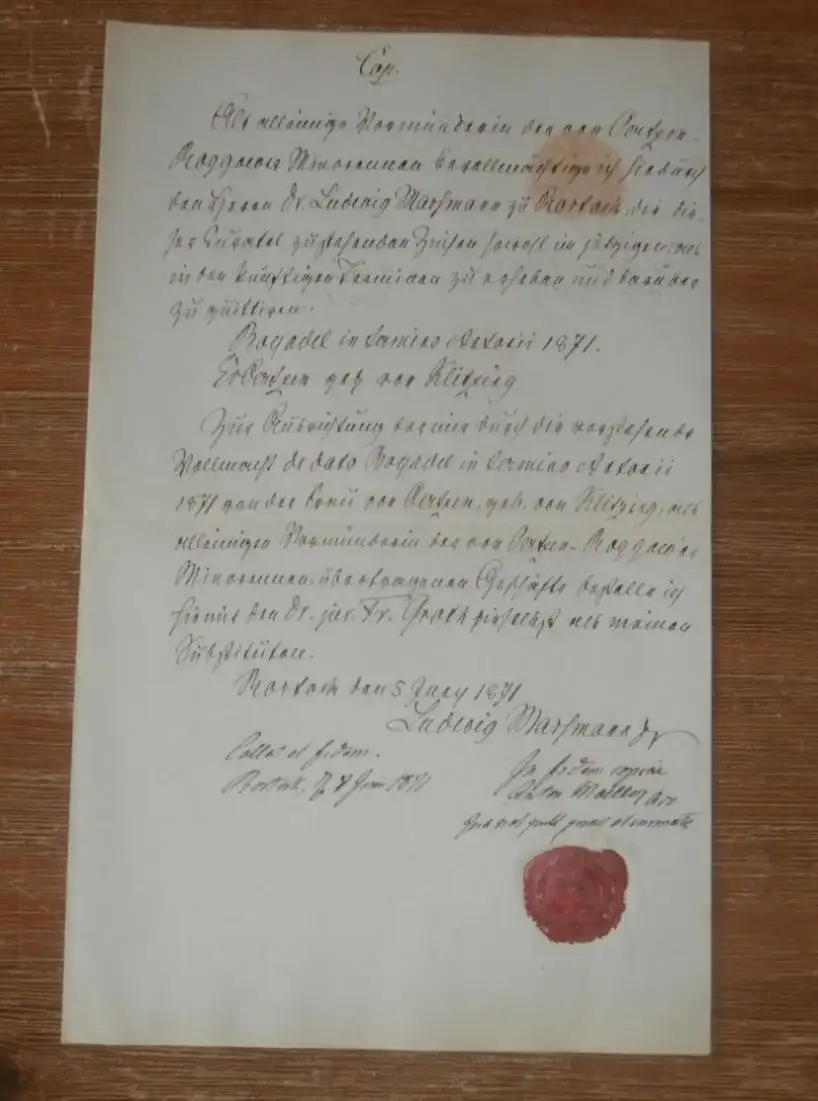 Cop.
Als alleinige Vormünderin der von Oertzen-
Roggower Minorennen bevollmächtige ich hiedurch
den Herrn Dr. Ludwig Massmann zu Rostock, die die-
ser Curatel zustehenden Zinsen sowohl im jetzigen, als
in den künftigen Terminen zu erheben und darüber
zu quittiren.
in termino Antonii 1871.
Oertzen geb von Klitzing
Zur Ausrichtung der mir durch die vorstehende
Vollmacht de dato in termino Antonii
1871 von der Frau von Oertzen, geb. von Klitzing, als
alleinigen Vormünderin der von Oertzen-Roggower
Minorennen, übertragenen Geschäfte bestelle ich
hiemit den Dr. jur. Fr. Groth hieselbst als meinen
Substituten.
Rostock den 5 Juny 1871
Ludwig Massmann Dr
Collat et fidem.
Rostock, 1871
In fidem copiae
Anton
not publ